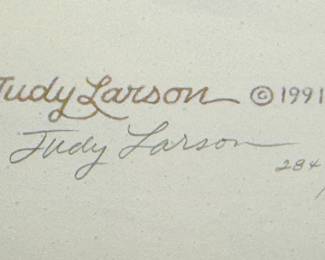 Judy Larson © 1991
Judy Larson
284